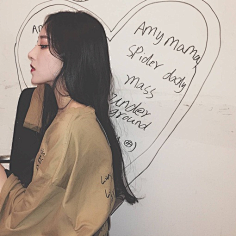 AP
Amy mama
spider dady
mass
under
ground